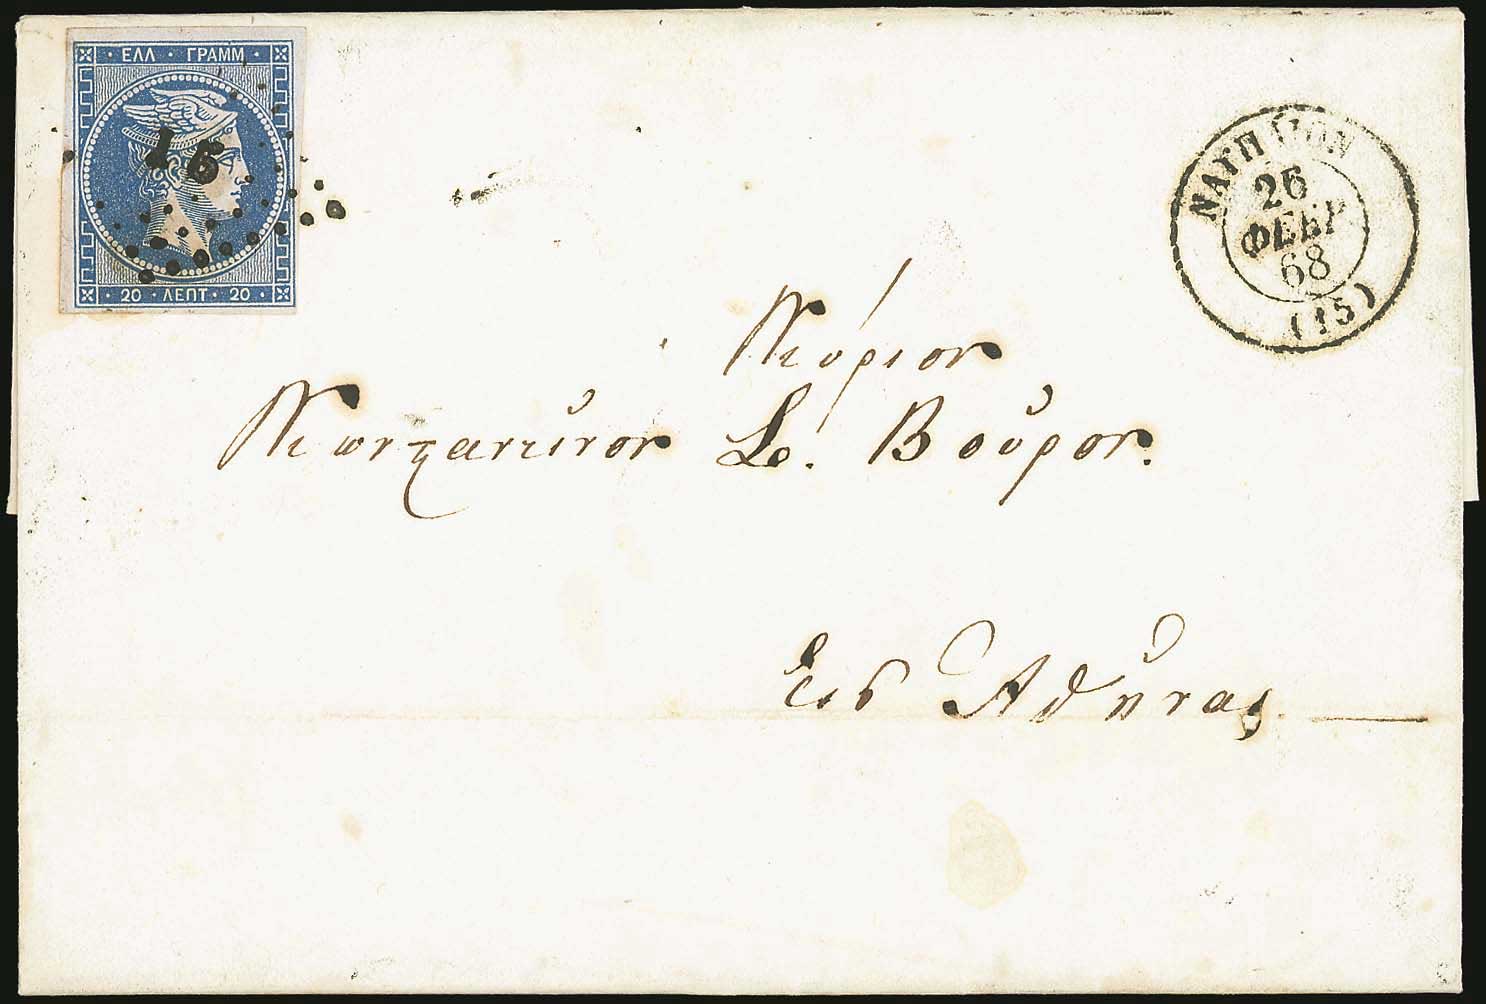 ΕΛΛ · ΓΡΑΜΜ
15
20 · ΛΕΠΤ · 20
ΝΑΥΠΛΙΟΝ
26
ΦΕΒΡ
68
(15)
Κύριον
Κωνσταντῖνον Σ. Βοῦρον.
Εἰς Ἀθήνας